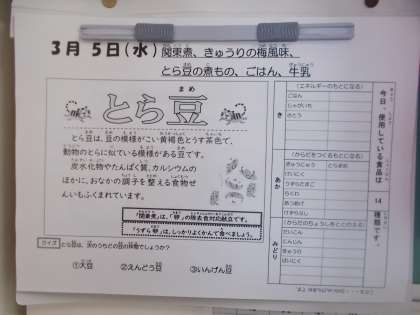 3月5日(水) 関東煮、きゅうりの梅風味、
とら豆の煮もの、ごはん、牛乳
とら豆
まめ
とら豆は、豆の模様がこい黄褐色とうす茶色で、
動物のとらに似ている模様がある豆です。
炭水化物やたんぱく質、カルシウムの
ほかに、おなかの調子を整える食物せ
んいもふくまれています。
「関東煮」は、「卵」の除去食対応献立です。
「うずら卵」は、しっかりよくかんで食べましょう。
クイズ とら豆は、次のうちどの豆の仲間でしょうか？
①大豆 ②えんどう豆 ③いんげん豆
今日、使用している食品は 14 種類です。
き
(エネルギーのもとになる)
ごはん
じゃがいも
さとう
あか
(からだをつくるもとになる)
ぎゅうにゅう とらまめ
けいにく
うずらたまご
ちくわ
あつあげ
けずりぶし
みどり
(からだのちょうしをととのえる)
だいこん
にんじん
きゅうり
ばいにく